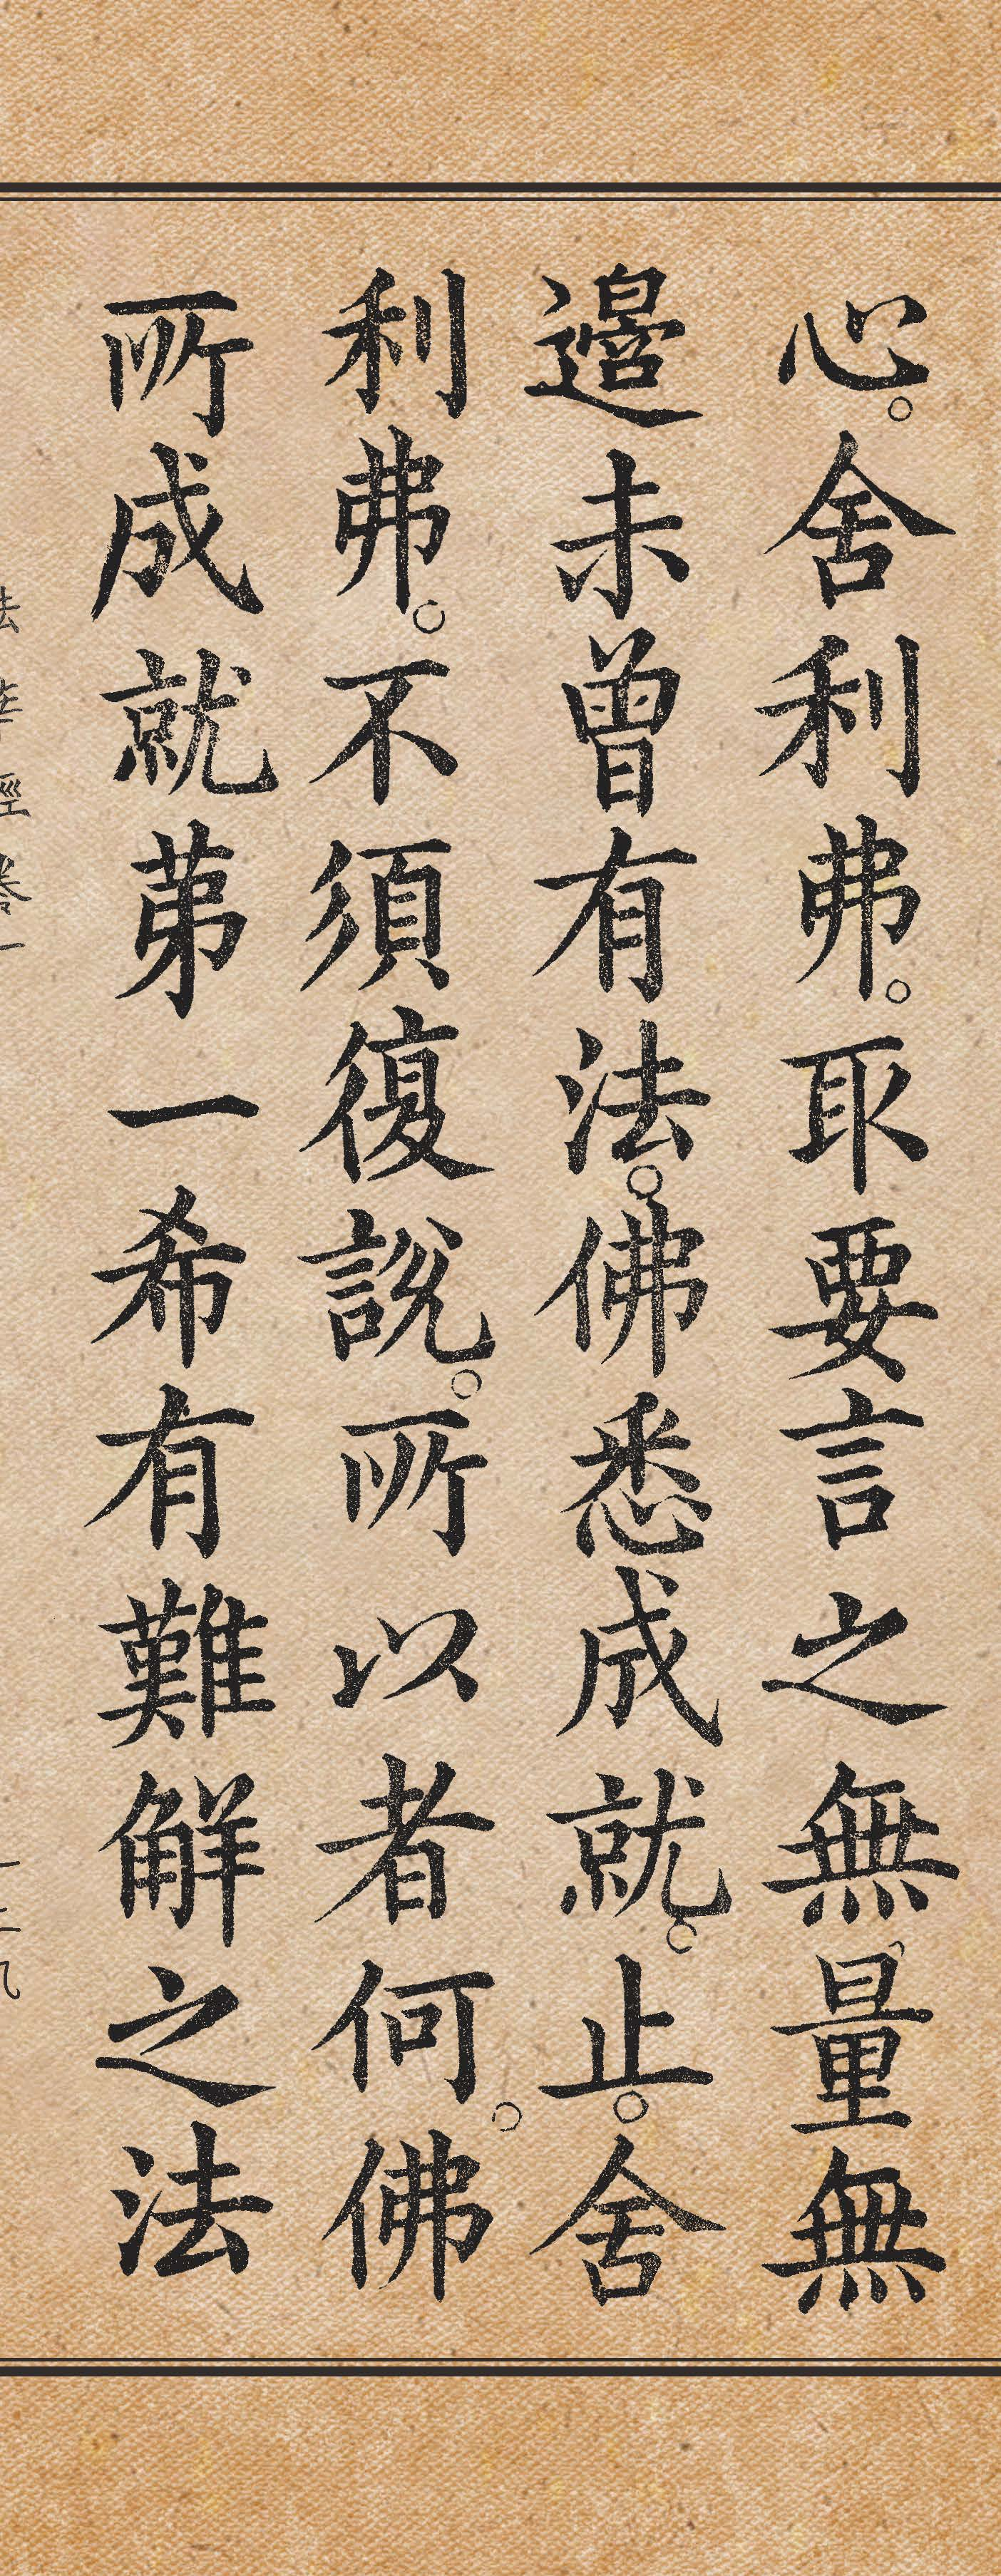 心。舍利弗。取要言之無量無
邊未曾有法。佛悉成就。止。舍
利弗。不須復説。所以者何。佛
所成就苐一希有難解之法
法華經卷一